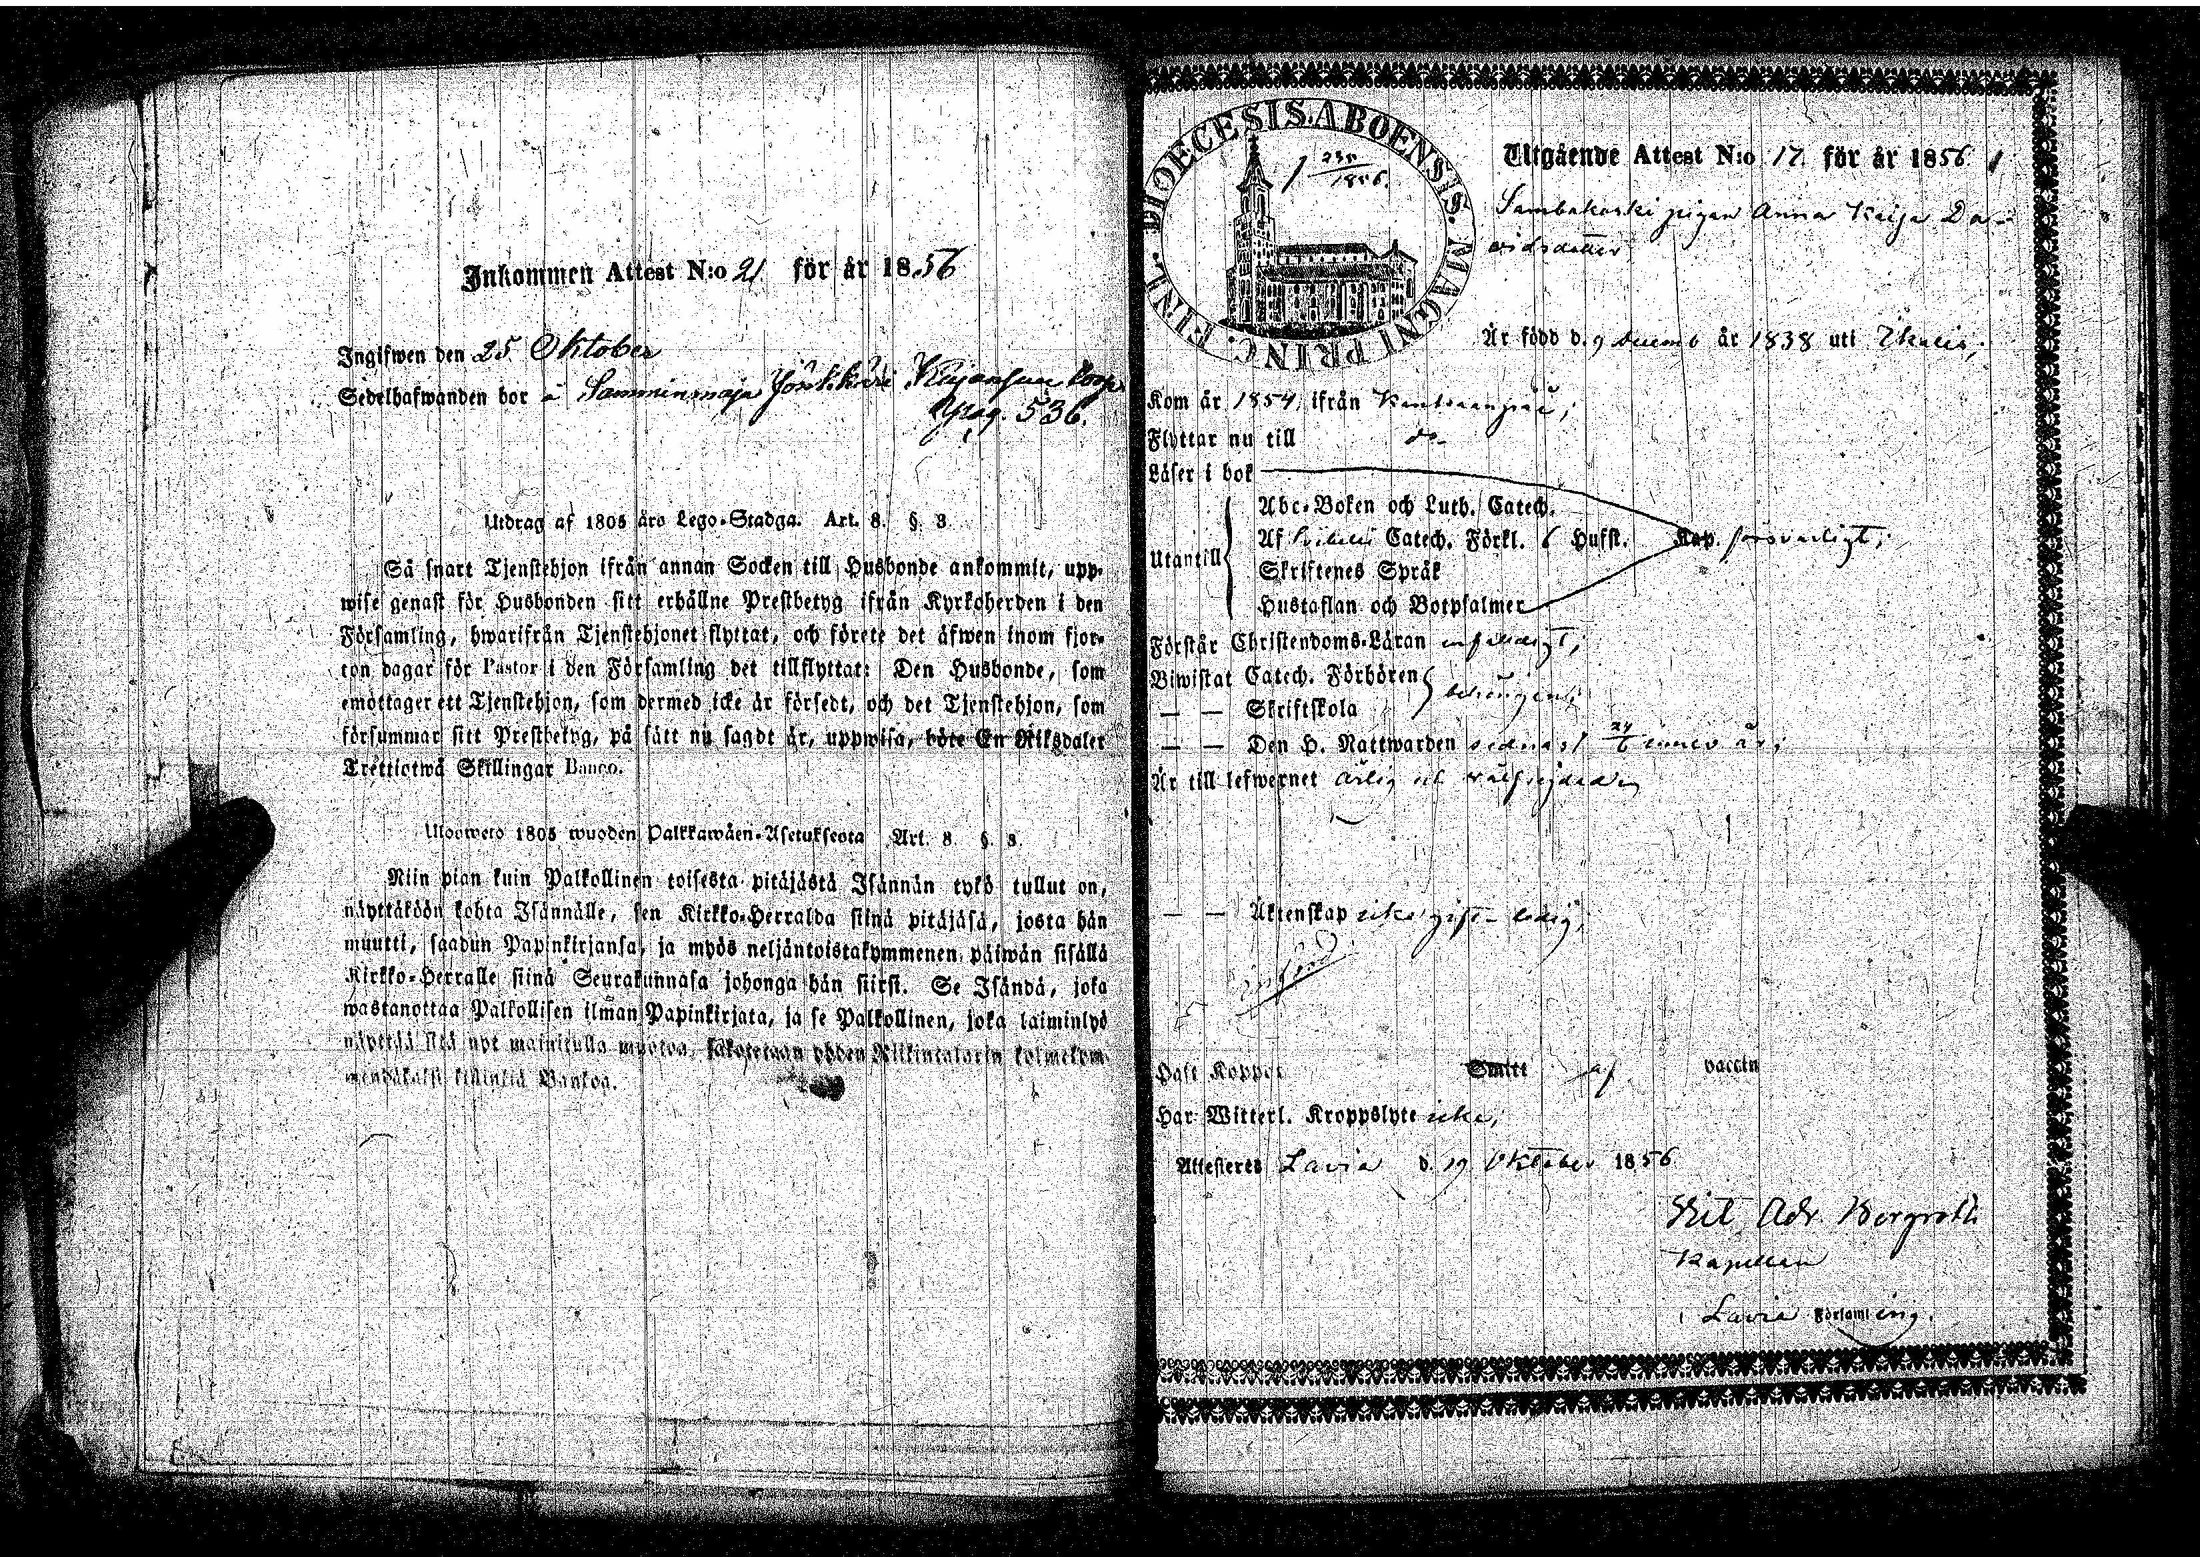 Inkommen Attest N:o 21 för år 1856
Ingifwen den 25 Oktober
Sedelhafwanden bor å Samminmaja
pag. 536.
Utdrag af 1805 års Lego-Stadga. Art. 8. §. 3
Så snart Tjenstehjon ifrån annan Socken till Husbonde ankommit, upp-
wise genast för Husbonden sitt erhållne Prestbetyg ifrån Kyrkoherden i den
Församling, hwarifrån Tjenstehjonet flyttat, och förete det äfwen inom fjor-
ton dagar för Pastor i den Församling det tillflyttat: Den Husbonde, som
emottager ett Tjenstehjon, som dermed icke är försedt, och det Tjenstehjon, som
försummar sitt Prestbetyg, på sätt nu sagdt är, uppwisa, böte En Riksdaler
Trettiotwå Skillingar Banco.
Ulosweto 1805 wuoden Palkkawäen-Asetuksesta Art. 8. §. 3.
Niin pian kuin Palkollinen toisesta pitäjästä Isännän tykö tullut on,
näyttäköön kohta Isännälle, sen Kirkko-Herralda siinä pitäjäsä, josta hän
muutti, saadun Papinkirjansa, ja myös neljäntoistakymmenen päiwän sisällä
Kirkko-Herralle siinä Seurakunnasa johonga hän siirsi. Se Isändä, joka
wastanottaa Palkollisen ilman Papinkirjata, ja se Palkollinen, joka laiminlyö
näyttää sitä nyt mainitulla muotoa, sakotetaan yhden Riikintalarin kolmekym-
mendäkaksi killinkiä Bankoa.
DIOECESIS. ABOENSIS. MAGNI PRINC. FINL.
1856.
Utgående Attest N:o 17. för år 1856
Sambakoski pigan Anna Kaisa Da-
vidsdotter
Är född d. 9 Decemb år 1838 uti Ikalis,
Kom år 1854 ifrån
Flyttar nu till do
Läser i bok
Abc-Boken och Luth. Catech.
Utantill Af Svebelii Catech. Förkl. 6 Hufst. Kap. försvarligt;
Skriftenes Språk
Hustaflan och Botpsalmer
Förstår Christendoms-Läran enfaldigt;
Biwistat Catech. Förhören
— — Skriftskola behörigen;
— — Den H. Nattwarden sednast 24/6 innev. år;
Är till lefwernet ärlig och välfrejdad
— — Äktenskap icke gift - ledig;
Haft Koppor Smitt af vaccin
Har Witterl. Kroppslyte icke;
Attesteres Lavia d. 19 Oktober 1856
Adr. Bergroth
Kapellan
i Lavia Församling.